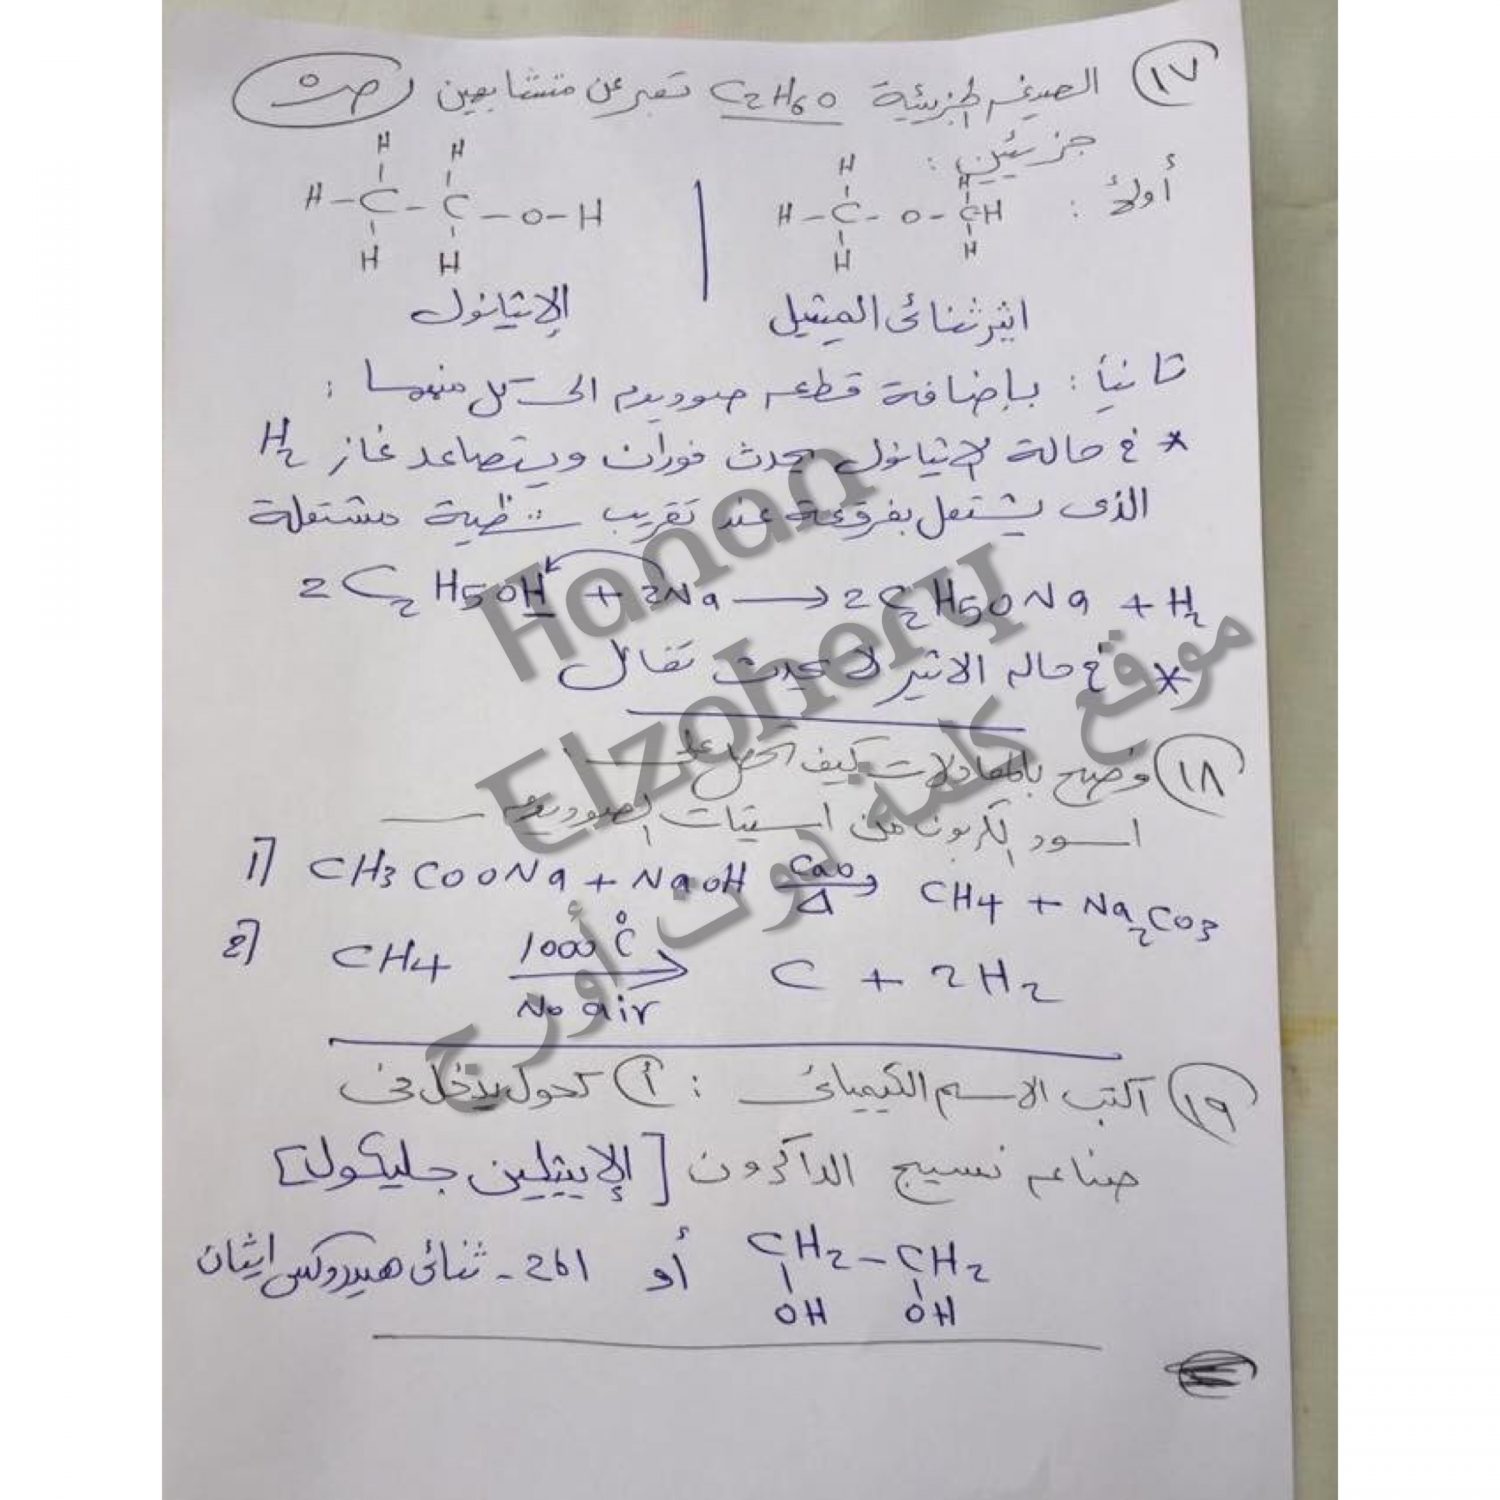 ١٧ الصيغة الجزيئية C2H6O تعبر عن متشابهين
جزيئين :
أولاً :
H H
H - C - C - O - H
H H
H H
H - C - O - CH
H H
اثير ثنائى الميثيل
الإيثانول
ثانياً : بإضافة قطعه صوديوم الى كل منهما :
* فى حالة الايثانول يحدث فوران ويتصاعد غاز H2
الذى يشتعل بفرقعة عند تقريب شظية مشتعلة
2C2H5OH + 2Na → 2C2H5ONa + H2
* فى حاله الاثير لا يحدث تفاعل
١٨ وضح بالمعادلات كيف تحصل على
اسود الكربون من اسيتات الصوديوم
1] CH3COONa + NaOH CaO Δ → CH4 + Na2CO3
2] CH4 1000 °C No air → C + 2H2
١٩ اكتب الاسم الكيميائى : أ كحول يدخل فى
صناعه نسيج الداكرون [الإيثيلين جليكول]
CH2 - CH2 أو 2،1 - ثنائى هيدروكسى ايثان
OH OH
Hanan
Elzohery
موقع كلمة دوت أورج